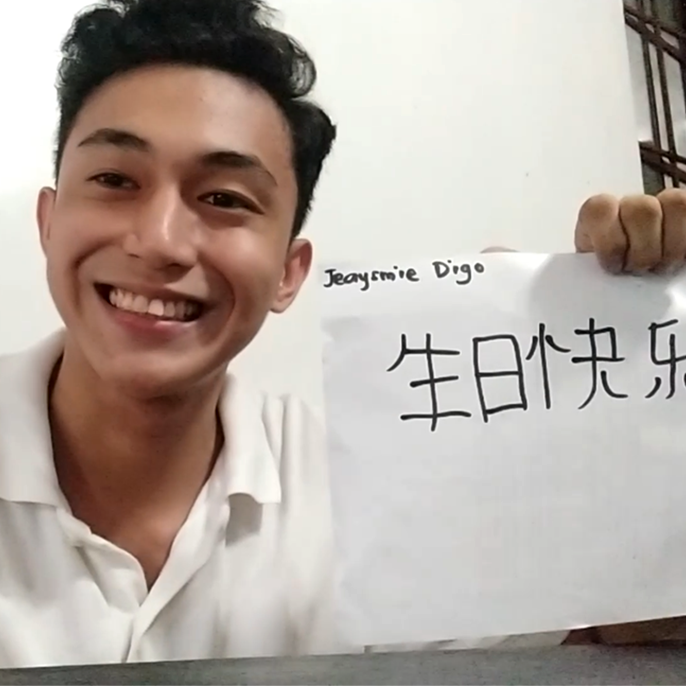 Jeaysmire Digo
生日快乐